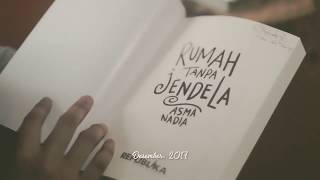 RUMAH
TANPA
JENDELA
ASMA
NADIA
REPUBLIKA
Desember, 2017